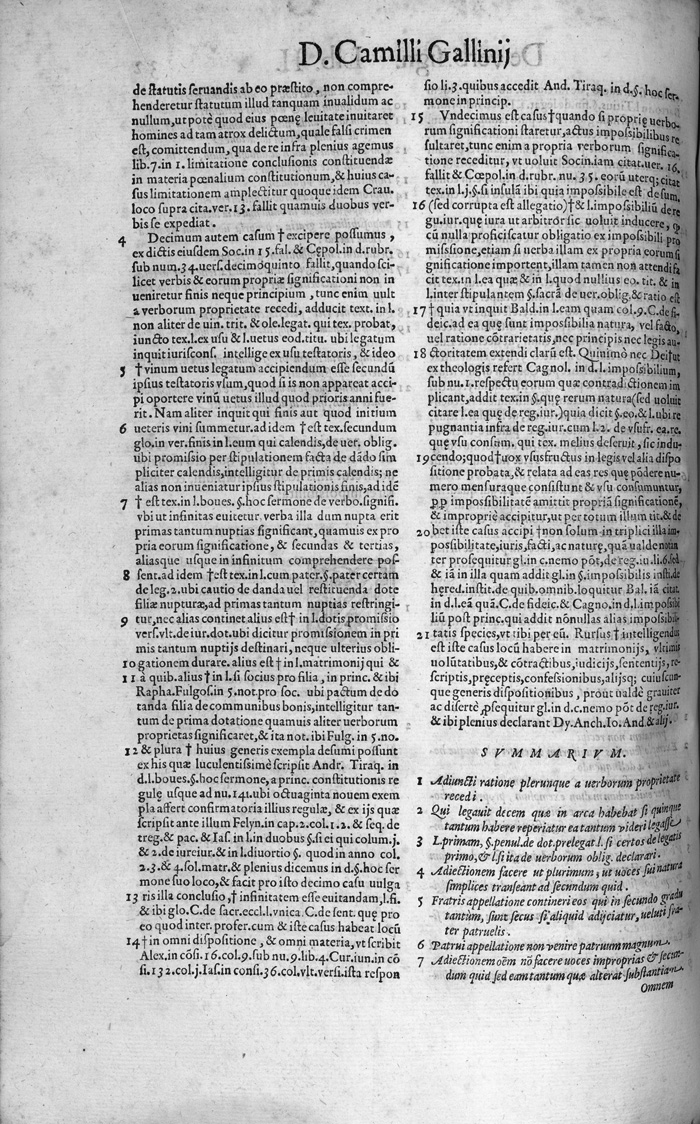 D. Camilli Gallinij
de statutis seruandis ab eo præstito, non compre-
henderetur statutum illud tanquam inualidum ac
nullum, ut potè quod eius pœnę leuitate inuitaret
homines ad tam atrox delictum, quale falsi crimen
est, comittendum, qua de re infra plenius agemus
lib.7.in 1. limitatione conclusionis constituendæ
in materia pœnalium constitutionum, & huius ca-
sus limitationem amplectitur quoque idem Crau.
loco supra cita.ver.13. fallit quamuis duobus ver-
bis se expediat.
4 Decimum autem casum † excipere possumus,
ex dictis eiusdem Soc.in 15.fal. & Cępol.in d.rubr.
sub num.34.uers.decimoquinto fallit, quando sci-
licet verbis & eorum propriæ significationi non in
ueniretur finis neque principium, tunc enim uult
a verborum proprietate recedi, adducit text. in l.
non aliter de uin. trit. & ole.legat. qui tex. probat,
iuncto tex.l.ex usu & l.uetus eod.titu. ubi legatum
inquit iuriscons. intellige ex usu testatoris, & ideo
5 † vinum uetus legatum accipiendum esse secundũ
ipsius testatoris vsum, quod si is non appareat acci-
pi oportere vinũ uetus illud quod prioris anni fue-
rit. Nam aliter inquit qui finis aut quod initium
6 ueteris vini sumetur. ad idem † est tex.secundum
glo.in ver.finis in l.eum qui calendis, de uer. oblig.
ubi promissio per stipulationem facta de dãdo sim
pliciter calendis, intelligitur de primis calendis; ne
alias non inueniatur ipsius stipulationis finis, ad idẽ
7 † est tex.in l.boues. §.hoc sermone de verbo.signifi.
vbi ut infinitas euitetur verba illa dum nupta erit
primas tantum nuptias significant, quamuis ex pro
pria eorum significatione, & secundas & tertias,
aliasque usque in infinitum comprehendere pos-
8 sent. ad idem † est tex.in l.cum pater.§.pater certam
de leg.2.ubi cautio de danda uel restituenda dote
filiæ nupturæ, ad primas tantum nuptias restringi-
9 tur, nec alias continet. alius est † in l.dotis promissio
vers.vlt.de iur.dot.ubi dicitur promissionem in pri
mis tantum nuptijs destinari, neque ulterius obli-
10 gationem durare. alius est † in l.matrimonij qui &
11 à quib.alius † in l.si socius pro filia, in princ. & ibi
Rapha.Fulgos.in 5.not.pro soc. ubi pactum de do
tanda filia de communibus bonis, intelligitur tan-
tum de prima dotatione quamuis aliter uerborum
proprietas significaret, & ita not. ibi Fulg. in 5.no.
12 & plura † huius generis exempla desumi possunt
ex his quæ luculentissimè scripsit Andr. Tiraq. in
d.l.boues.§.hoc sermone, a princ. constitutionis re
gulę usque ad nu.141.ubi octuaginta nouem exem
pla affert confirmatoria illius regulæ, & ex ijs quæ
scripsit ante illum Felyn.in cap.2.col.1.2. & seq. de
treg.& pac. & Ias. in l.in duobus §.si ei qui colum.j.
& 2.de iureiur. & in l.diuortio §. quod in anno col.
2.3. & 4.sol.matr.& plenius dicemus in d.§.hoc ser
mone suo loco, & facit pro isto decimo casu uulga
13 ris illa conclusio, † infinitatem esse euitandam, l.fi.
& ibi glo.C.de sacr.eccl.l.vnica.C.de sent. quę pro
eo quod inter.profer.cum & iste casus habeat locũ
14 † in omni dispositione, & omni materia, vt scribit
Alex.in cõsi.16.col.9.sub nu.9.lib.4.Cur.iun.in cõ
si.132.col.j.Ias.in consi.36.col.vlt.versi.ista respon
sio li.3.quibus accedit And. Tiraq. in d.§. hoc ser-
mone in princip.
15 Vndecimus est casus † quando si propriè uerbo-
rum significationi staretur, actus impossibilibus re
sultaret, tunc enim a propria verborum significa-
tione receditur, vt uoluit Socin.iam citat.uer. 16.
fallit & Cœpol.in d.rubr.nu. 35. eorũ uterq; citat
tex.in l.j.§.si insulã ibi quia impossibile est desum.
16 (sed corrupta est allegatio) † & l.impossibiliũ de re
gu.iur.quę iura ut arbitrõr sic uoluit inducere, q̃
cũ nulla proficiscatur obligatio ex impossibili pro
missione, etiam si uerba illam ex propria eorum si
gnificatione importent, illam tamen non attendi fa
cit tex.in l.ea quæ & in l.quod nullius eo. tit. & in
l.inter stipulantem §.sacrã de uer.oblig.& ratio est
17 † quia vt inquit Bald.in l.eam quam col.9.C.de fi-
deic.ad ea quę sunt impossibilia natura, vel facto,
uel ratione cõtrarietatis, nec principis nec legis au-
18 ctoritatem extendi clarũ est. Quinimò nec Dei, ut
ex theologis refert Cagnol. in d.l.impossibilium,
sub nu.1.respectu eorum quæ contradictionem im
plicant, addit tex.in §.quę rerum natura (sed uoluit
citare l.ea quę de reg.iur.) quia dicit §.eo.& l.ubi re
pugnantia infra de reg.iur.cum l.2. de vsufr. ea.re.
quę vsu consum. qui tex. melius deseruit, sic indu-
19 cendo; quod † uox vsusfructus in legis vel alia dispo
sitione probata, & relata ad eas res quę põdere nu-
mero mensuraque consistunt & vsu consumuntur,
ꝓp impossibilitatẽ amittit propriã significationẽ,
& impropriè accipitur, ut per totum illum tit.& de
20 bet iste casus accipi † non solum in triplici illa im-
possibilitate, iuris, facti, ac naturę, quã ualde notãn
ter prosequitur gl.in c.nemo põt, de reg.iu.li.6.sed
& iã in illa quam addit gl.in §.impossibilis insti.de
hered.instit.de quib.omnib.loquitur Bal. iã citat.
in d.l.eã quã.C.de fideic.& Cagno.in d.l.impossibi
liũ post princ.qui addit nõnullas alias impossibi-
21 tatis species, vt tibi per eũ. Rursus † intelligendus
est iste casus locũ habere in matrimonijs, vltimis
uolũtatibus, & cõtractibus, iudicijs, sententijs, re-
scriptis, pręceptis, confessionibus, alijsq; cuiuscun-
que generis dispositionibus, prout ualdè grauiter
ac disertè ꝓsequitur gl.in d.c.nemo põt de reg.iur.
& ibi plenius declarant Dy.Anch.Io.And.& alij.
SVMMARIVM.
1 Adiuncti ratione plerunque a uerborum proprietate
recedi.
2 Qui legauit decem quæ in arca habebat si quinque
tantum habere reperiatur ea tantum videri legasse.
3 L.primam, §.penul.de dot.prelegat.l.si certos de legatis
primo, & l.si ita de uerborum oblig. declarari.
4 Adiectionem facere ut plurimum, ut uoces sui natura
simplices transeant ad secundum quid.
5 Fratris appellatione contineri eos qui in secundo gradu
tantum, sunt secus si aliquid adijciatur, ueluti fra-
ter patruelis.
6 Patrui appellatione non venire patruum magnum.
7 Adiectionem oẽm nõ facere uoces improprias & secun-
dum quid sed eam tantum quæ alterat substantiam.
Omnem